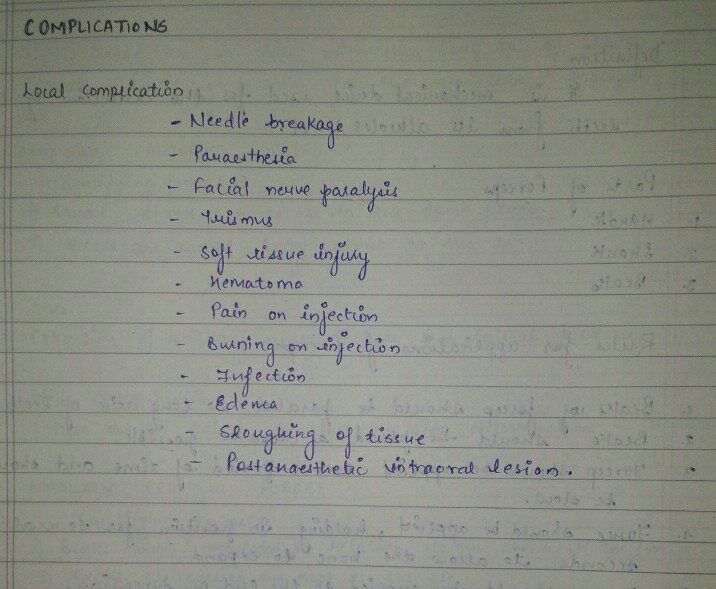 COMPLICATIONS
Local complication
- Needle breakage
- Paraesthesia
- Facial nerve paralysis
- Trismus
- Soft tissue injury
- Hematoma
- Pain on injection
- Burning on injection
- Infection
- Edema
- Sloughing of tissue
- Postanaesthetic intraoral lesion.